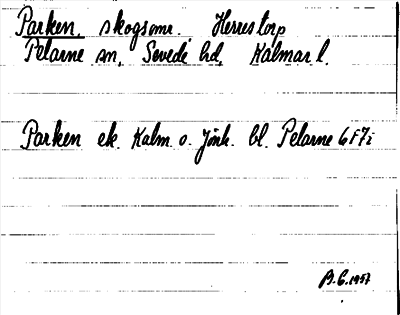 Parken, skogsomr. Herrestorp
Pelarne sn, Sevede hd, Kalmar l.
Parken ek. Kalm. o. Jönk. bl. Pelarne 6F7i
B.G. 1957